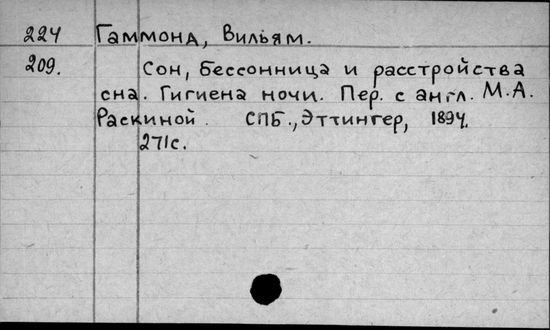 224 Гаммонд, Вильям.
209. Сон, бессонница и расстройства
сна. Гигиена ночи. Пер. с англ. М.А.
Раскиной. СПБ., Эттингер, 1894.
271с.